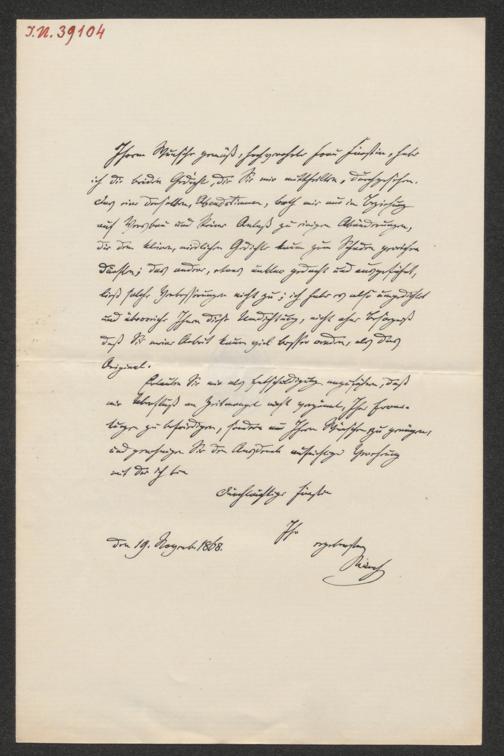 J.N. 39104
Ihrem Wunsche gemäß, hochverehrte Frau Fürstin, habe
ich die beiden Gedichte, die Sie mir mittheilten, durchgesehen.
Das eine derselben, bot mir in Beziehung
auf Versbau und Reime Anlaß zu einigen Abänderungen,
die dem kleinen, niedlichen Gedichte kaum zum Schaden gereichen
dürften; das andere, etwas gedacht und ausgeführt,
ließ solche Verbesserungen nicht zu; ich habe es also umgedichtet
und überreiche Ihnen diese Umdichtung, nicht ohne Besorgniß
daß Sie meine Arbeit kaum viel besser finden, als das
Original.
Erlauben Sie mir als Entschuldigung anzuführen, daß
mir Überfluß an Zeitmangel nicht gegönnt, Ihre
zu befriedigen, sondern nur Ihren Wünschen zu genügen,
und genehmigen Sie den Ausdruck aufrichtiger Verehrung
mit der ich bin
Durchlauchtige Fürstin
Ihr
den 19. Novemb. 1868. ergebenster